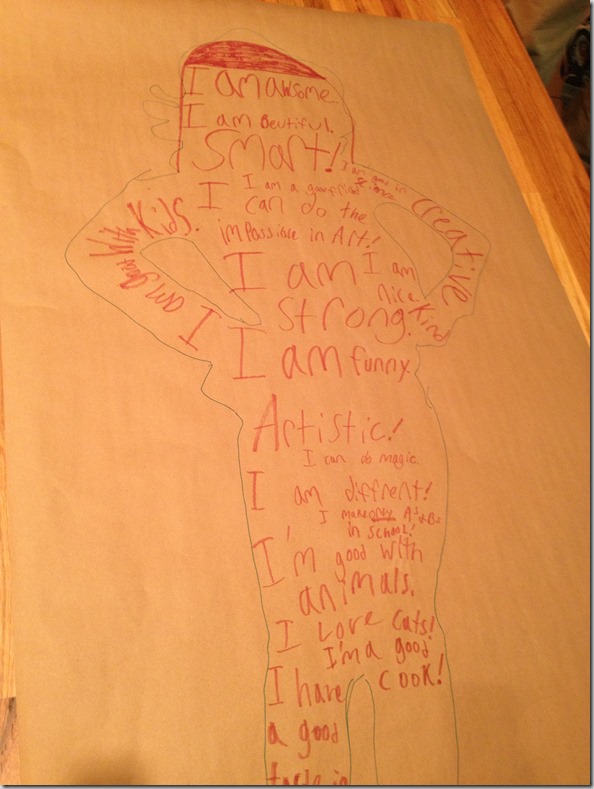 I am awsome.
I am Beutiful.
Smart!
I am good in
I am a good friend
I can do the
impossible in Art!
creative
I am great with Kids.
I am
I am
nice
Kind
strong.
I
I am funny.
Artistic!
I can do magic.
I am diffrent!
I make only A's & B's
in school!
I'm good with
animals.
I Love Cats!
I'm a good
cook!
I have
a good
taste in